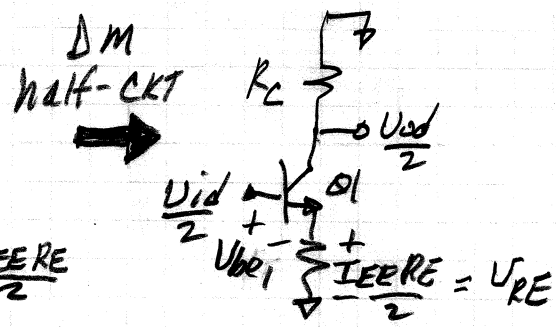 DM
half-CKT
RC
Uod
2
Uid
2
Q1
+
Ube1
-
+
IEERE
-
2
= URE
EERE
2